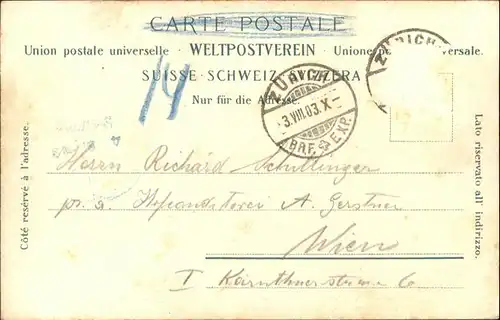 CARTE POSTALE
Union postale universelle · WELTPOSTVEREIN · Unione postale universale.
SUISSE · SCHWEIZ · SVIZZERA
Nur für die Adresse.
14
ZÜRICH
3.VIII.03.X-
BRF. EXP.
ZÜRICH
Côté reservé à l'adresse.
Lato riservato all' indirizzo.
Herrn Richard Schillinger
pr. a. A. Gerstner
Wien
I Kärnthnerstrasse 6